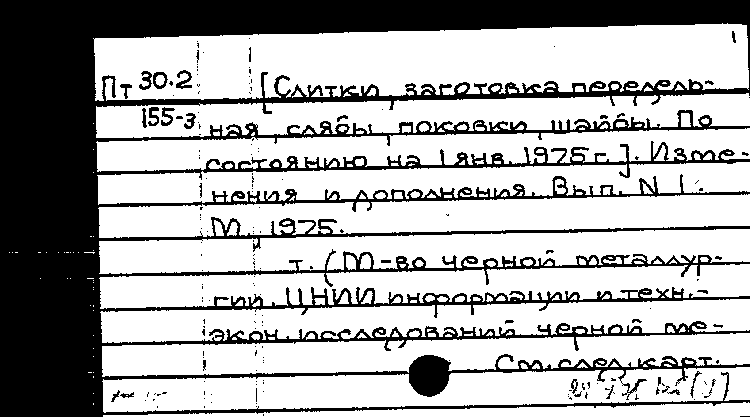 Пт 30.2
155-3
[Слитки, заготовка передель-
ная, слябы, поковки, шайбы. По
состоянию на 1 янв. 1975 г.]. Изме-
нения и дополнения. Вып. N 1.
М., 1975.
т. (М-во черной металлур-
гии. ЦНИИ информации и техн.-
экон. исследований черной ме-
См. след. карт.